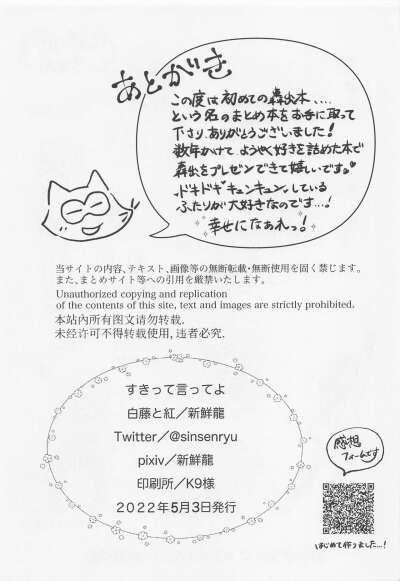 あとがき
この度は初めての轟出本....
という名のまとめ本をお手に取って
下さり、ありがとうございました!
数年かけて ようやく好きを詰めた本で
轟出をプレゼンできて嬉しいです。
ドキドキキュンキュンしている
ふたりが大好きなのです...!
幸せになあれっ。
当サイトの内容、テキスト、画像等の無断転載・無断使用を固く禁じます。
また、まとめサイト等への引用を厳禁いたします。
Unauthorized copying and replication
of the contents of this site, text and images are strictly prohibited.
本站內所有图文请勿转载.
未经许可不得转载使用,违者必究.
すきって言ってよ
白藤と紅／新鮮龍
Twitter／@sinsenryu
pixiv／新鮮龍
印刷所／K9様
2022年5月3日発行
感想
フォームです
はじめて作りました...!